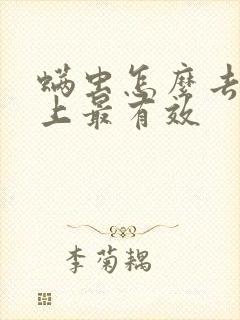 螨虫怎麽去
上最有效
李菊耦